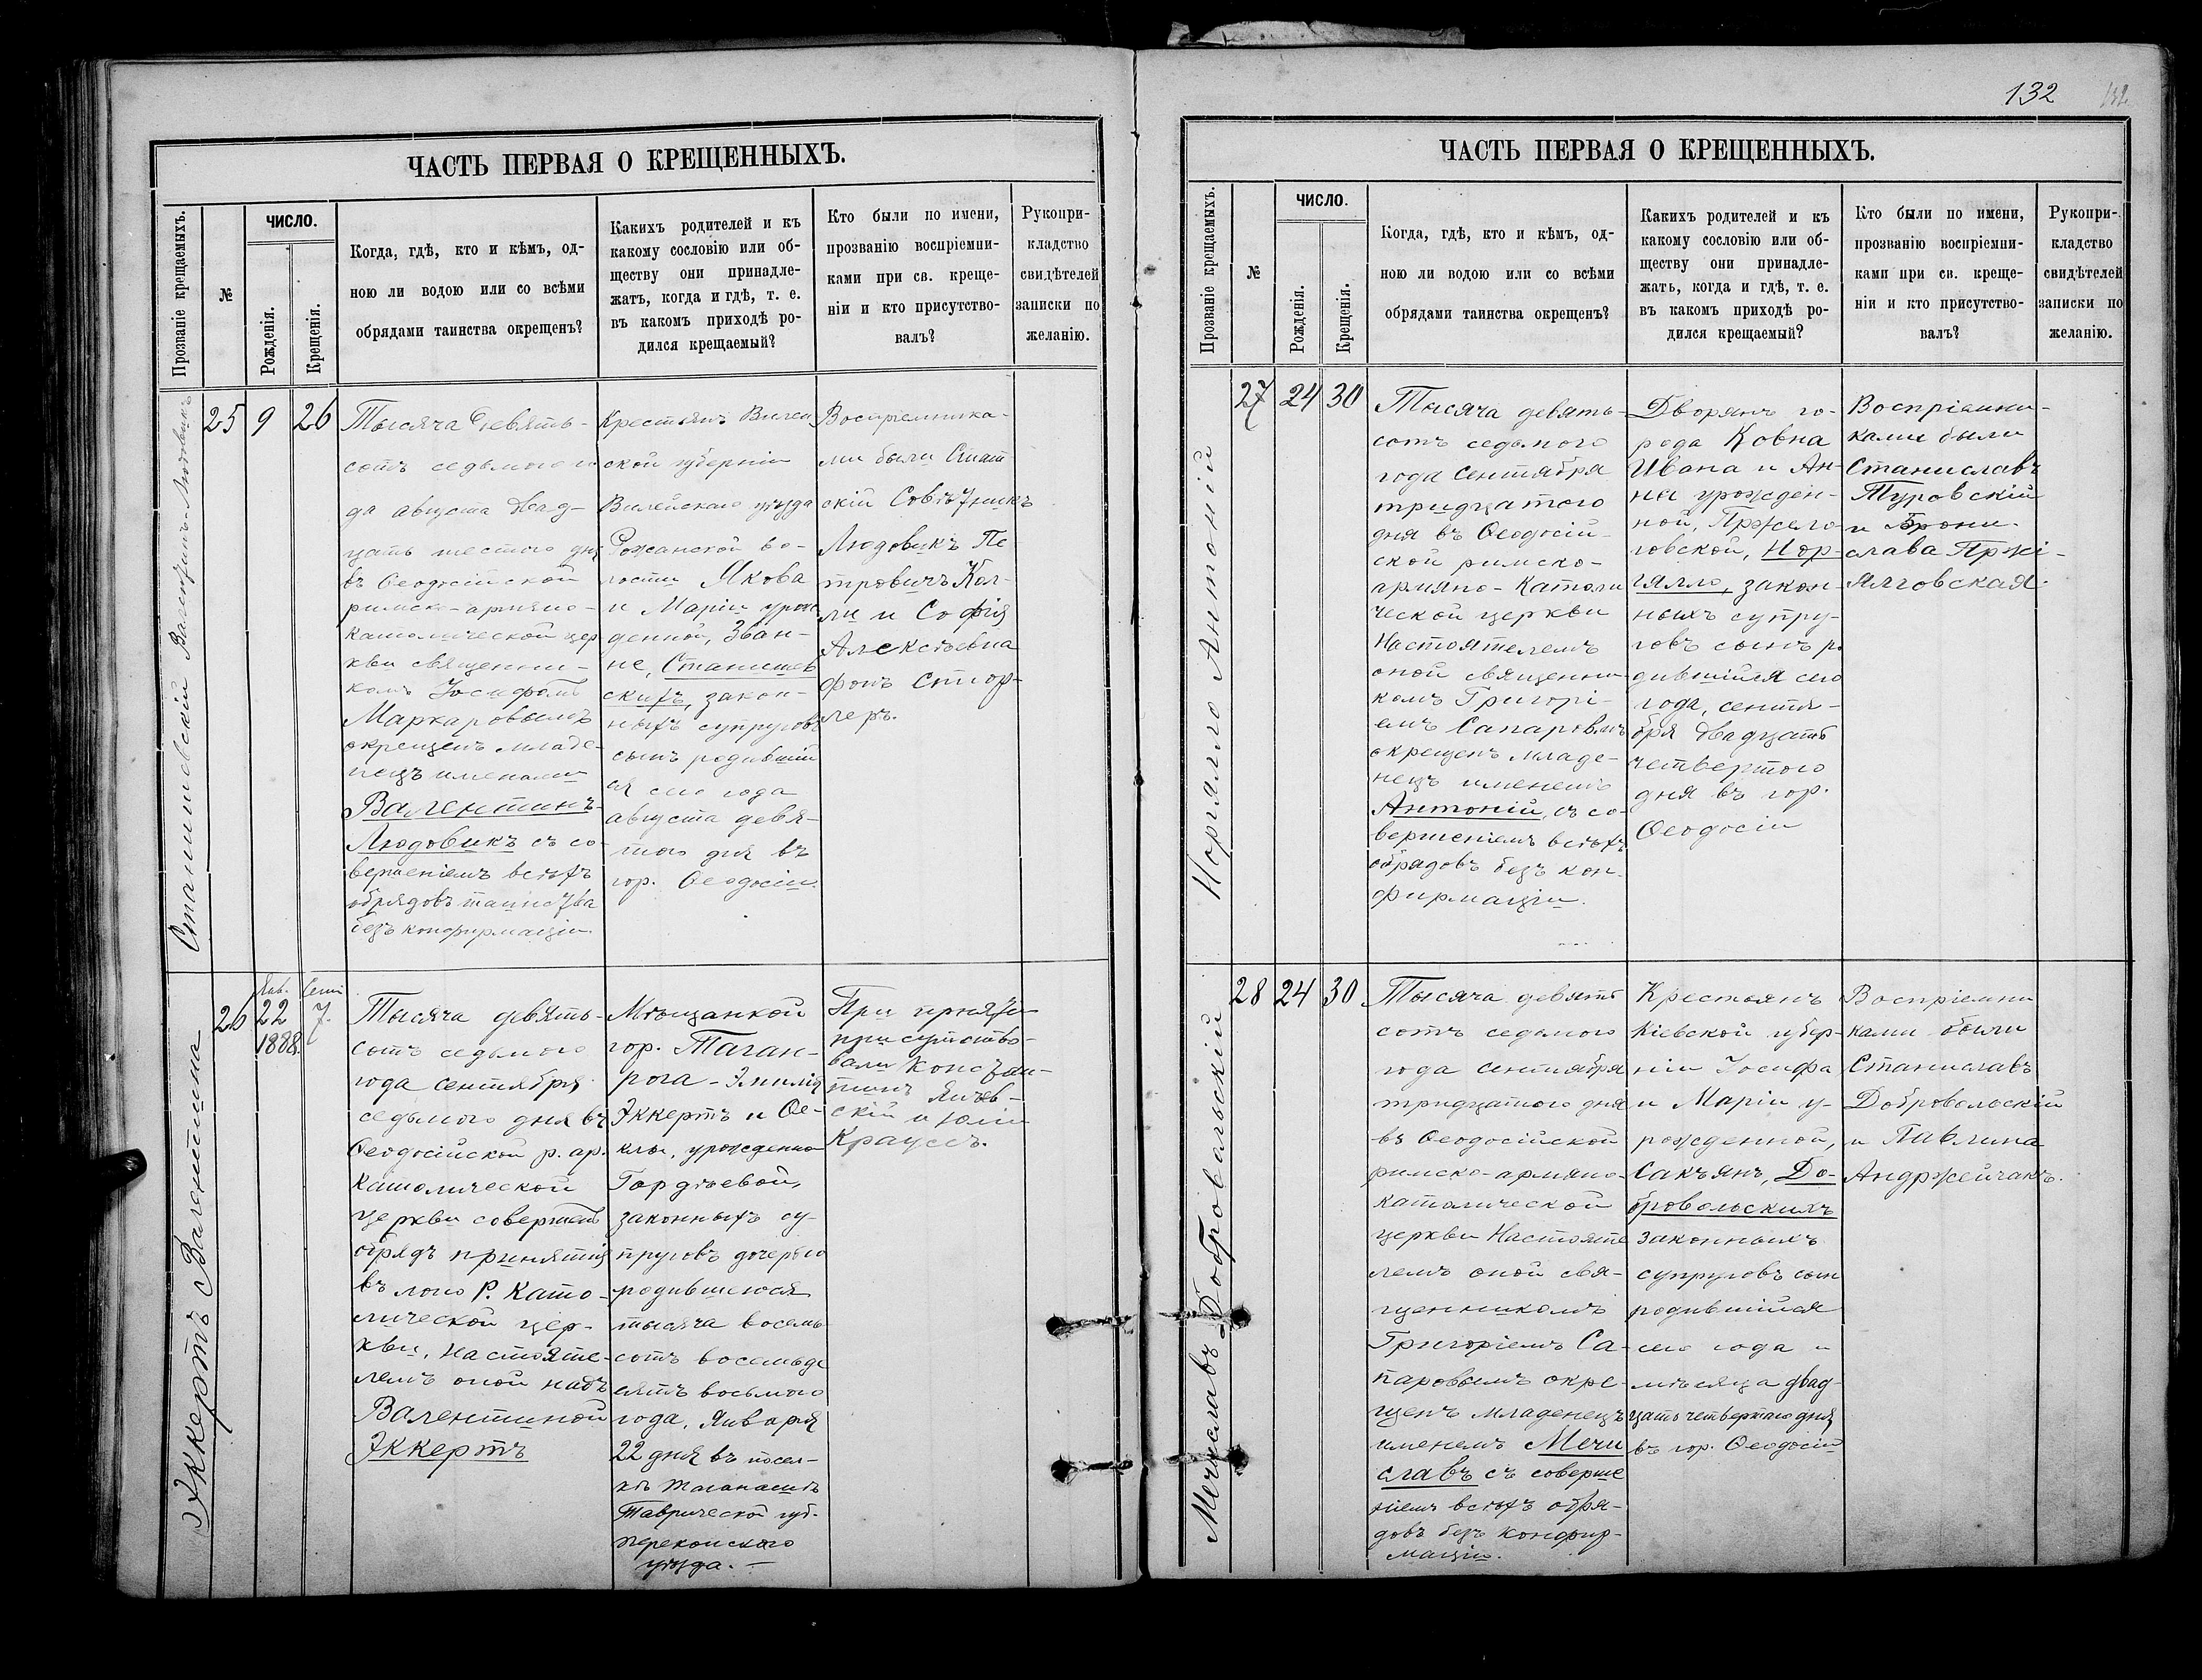 ЧАСТЬ ПЕРВАЯ О КРЕЩЕННЫХЪ.
Прозваніе крещаемыхъ.
№
ЧИСЛО.
Рожденія.
Крещенія.
Когда, гдѣ, кто и кѣмъ, од-
ною ли водою или со всѣми
обрядами таинства окрещенъ?
Какихъ родителей и къ
какому сословію или об-
ществу они принадле-
жатъ, когда и гдѣ, т. е.
въ какомъ приходѣ ро-
дился крещаемый?
Кто были по имени,
прозванію воспріемни-
ками при св. креще-
ніи и кто присутство-
валъ?
Рукопри-
кладство
свидѣтелей
записки по
желанію.
Станишевскій Валентинъ-Людовикъ
25
9
26
Тысяча девять-
сотъ седьмого го
да августа двад-
цать шестого дня
въ Ѳеодосійской
римско-армяно-
католической цер
кви священни-
комъ Іосифомъ
Маркаровымъ
окрещенъ младе-
нецъ именами
Валентинъ-
Людовикъ съ со-
вершеніемъ всѣхъ
обрядовъ таинства
безъ конфирмаціи.
Крестьянъ Вилен
ской губерніи
Вилейскаго уѣзда
Рожанской во-
лости Якова
и Маріи урож
денной, Зван-
не, Станишев
скихъ, закон-
ныхъ супруговъ
сынъ родившій
ся сего года
августа девя-
того дня въ
гор. Ѳеодосіи.
Воспріемника-
ми были Стат
скій Совѣтникъ
Людовикъ Пе
тровичъ Кол-
ли и Софія
Алексѣевна
фонъ Стюр-
леръ.
Эккертъ Валентина
26
Янв.
22
1888.
Сент
7.
Тысяча девять-
сотъ седьмого
года сентября
седьмого дня въ
Ѳеодосійской р. ар.
Католической
церкви совершенъ
обрядъ принятія
въ лоно Р. Като-
лической цер-
кви, настояте-
лемъ оной надъ
Валентиной
Эккертъ
Мѣщанкой
гор. Таган-
рога - Эмилія
Эккертъ и Ѳе-
клы, урожденно
Гордѣевой,
законныхъ су-
пруговъ дочерью
родившеюся
тысяча восемь
сотъ восемьде
сятъ восьмого
года, Января
22 дня въ посел-
кѣ
Таврической губ.
перекопского
уѣзда. -
При принятіи
присутство-
вали Констан-
тинъ
скій и Юлій
Крауссъ.
132
132
ЧАСТЬ ПЕРВАЯ О КРЕЩЕННЫХЪ.
Прозваніе крещаемыхъ.
№
ЧИСЛО.
Рожденія.
Крещенія.
Когда, гдѣ, кто и кѣмъ, од-
ною ли водою или со всѣми
обрядами таинства окрещенъ?
Какихъ родителей и къ
какому сословію или об-
ществу они принадле-
жатъ, когда и гдѣ, т. е.
въ какомъ приходѣ ро-
дился крещаемый?
Кто были по имени,
прозванію воспріемни-
ками при св. креще-
ніи и кто присутство-
валъ?
Рукопри-
кладство
свидѣтелей
записки по
желанію.
Норгялло Антоній
27
24
30
Тысяча девять-
сотъ седьмого
года Сентября
тридцатого
дня въ Ѳеодосій-
ской римско-
армяно-Католи
ческой церкви
Настоятелемъ
оной священни-
комъ Григорі-
емъ Сапаровымъ
окрещенъ младе-
нецъ именемъ
Антоній, съ со-
вершеніемъ всѣхъ
обрядовъ безъ кон-
фирмаціи.
Дворянъ го-
рода Ковна
Ивана и Ан-
ны урожден-
ной,
говской, Нор-
гялло, закон-
ныхъ супру-
говъ сынъ ро
дившійся сего
года, сентя-
бря двадцать
четвертого
дня въ гор.
Ѳеодосіи
Воспріемни-
ками были
Станиславъ
Туровскій
и Брони-
слава Пржі-
ялговская.
Мечиславъ Добровольскій
28
24
30
Тысяча девять
сотъ седьмого
года сентября
тридцатого дня
въ Ѳеодосійской
римско-армяно-
католической
церкви Настояте
лемъ оной свя-
щенникомъ
Григоріемъ Са-
паровымъ окре-
щенъ младенецъ
именемъ Мечи
славъ съ соверше
ніемъ всѣхъ обря-
довъ безъ конфир-
маціи.
Крестьянъ
Кіевской губер-
ніи Іосифа
и Маріи у-
рожденной,
Сакъянъ, До-
бровольскихъ
законныхъ
супруговъ сын
родившійся
сего года и
мѣсяца двад-
цать четвертаго дня
въ гор. Ѳеодосіи
Воспріемни
ками были
Станиславъ
Добровольскій
и Павлина
Андржейчакъ.